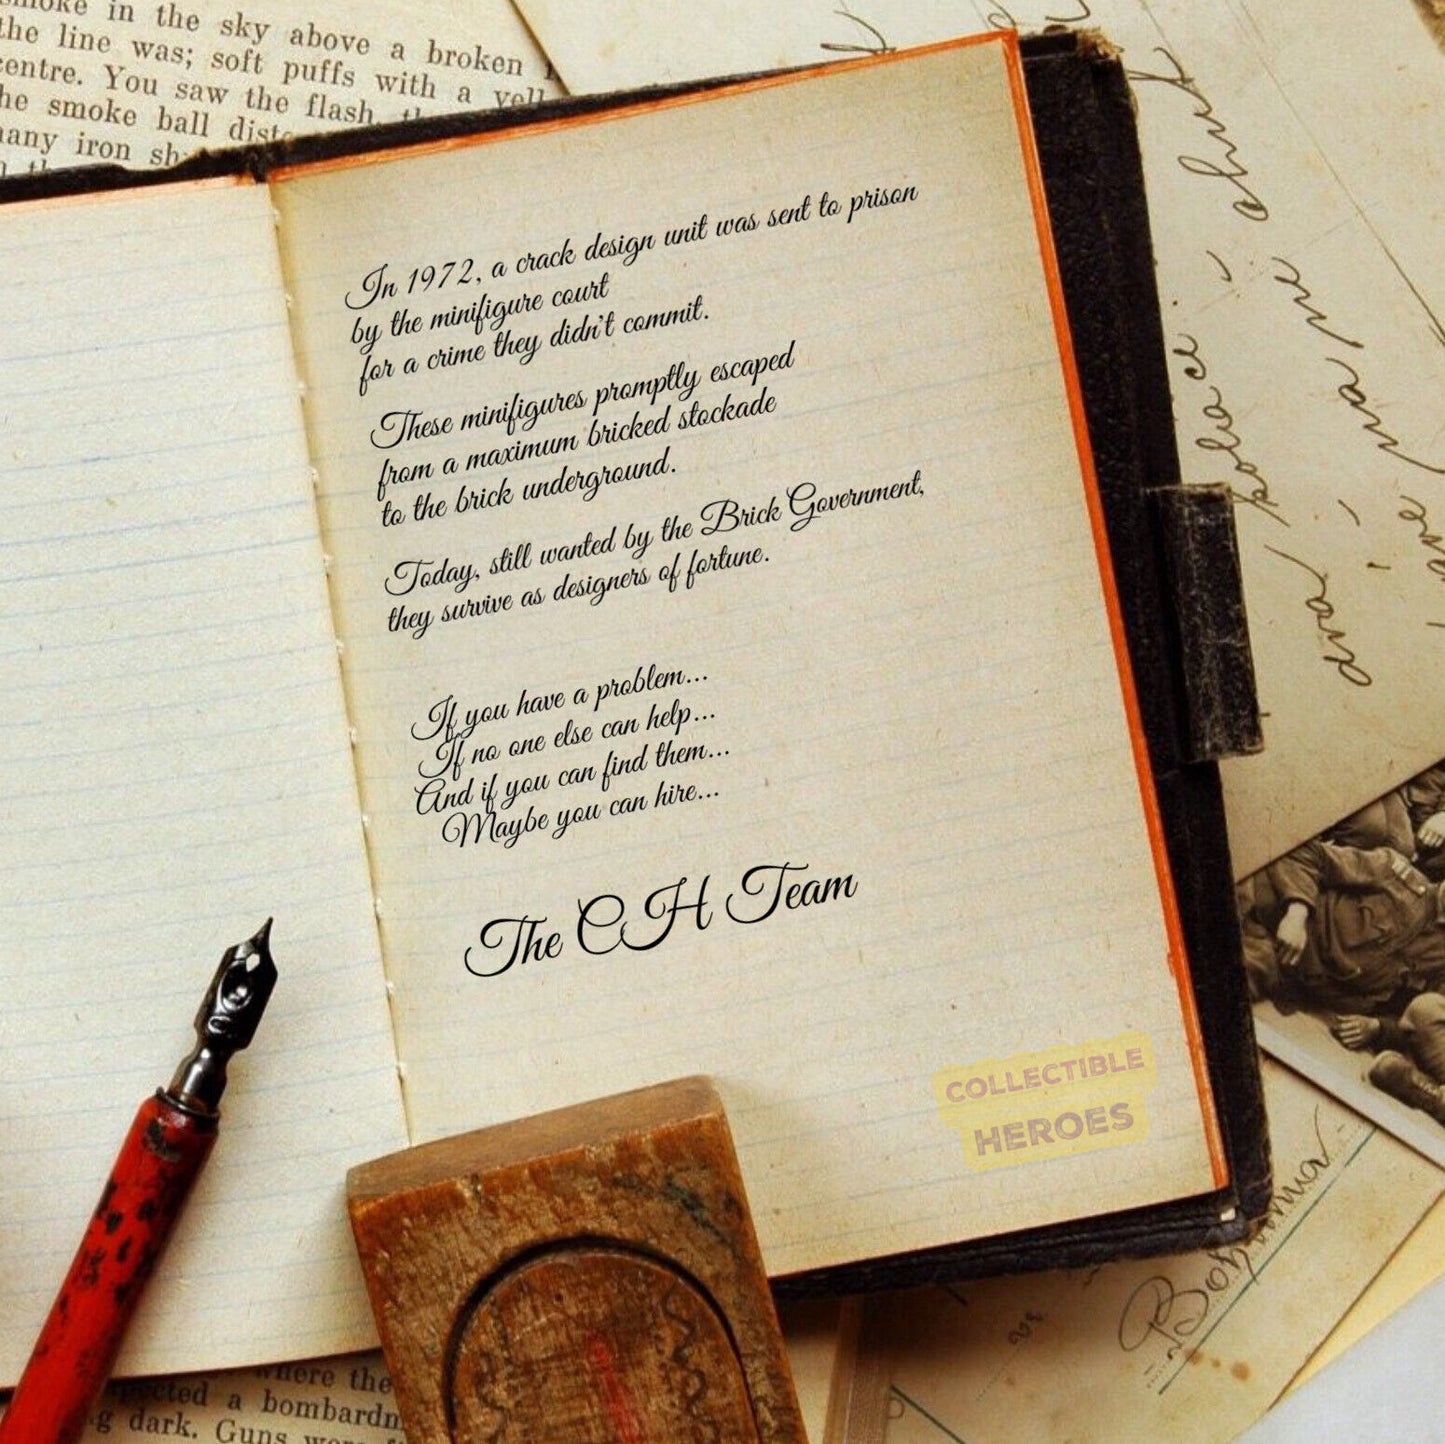 smoke in the sky above a broken
the line was; soft puffs with a
centre. You saw the flash,
he smoke ball
many iron
In 1972, a crack design unit was sent to prison
by the minifigure court
for a crime they didn't commit.
These minifigures promptly escaped
from a maximum bricked stockade
to the brick underground.
Today, still wanted by the Brick Government,
they survive as designers of fortune.
If you have a problem...
If no one else can help...
And if you can find them...
Maybe you can hire...
The CH Team
COLLECTIBLE
HEROES
where the
a
dark. Guns